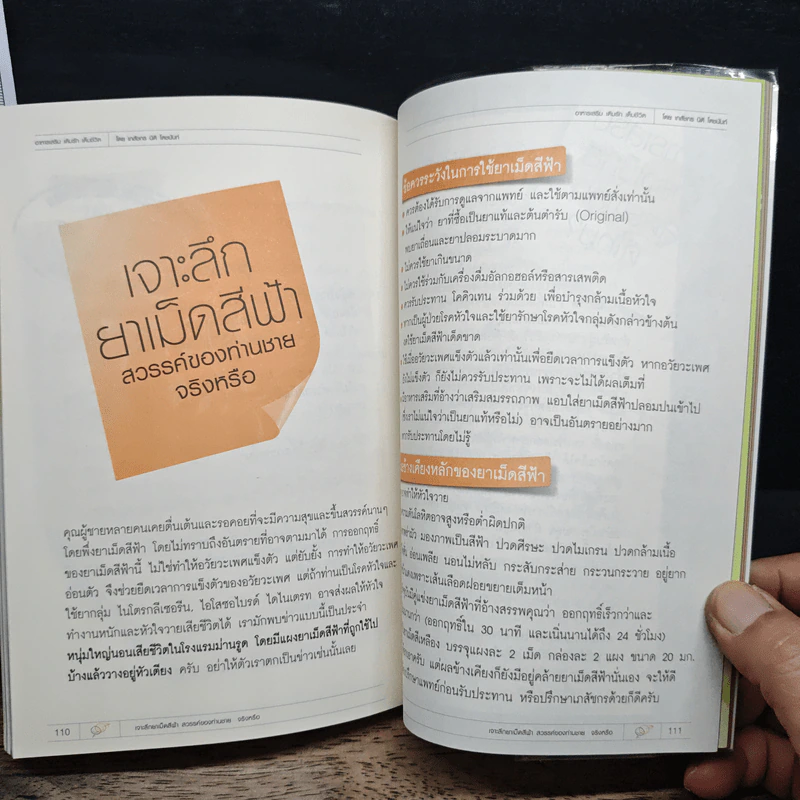 อาหารเสริม เติมรัก เต็มชีวิต | โดย เภสัชกร นิติ โตชนันท์
เจาะลึก
ยาเม็ดสีฟ้า
สวรรค์ของท่านชาย
จริงหรือ
คุณผู้ชายหลายคนเคยตื่นเต้นและรอคอยที่จะมีความสุขและขึ้นสวรรค์นานๆ
โดยพึ่งยาเม็ดสีฟ้า โดยไม่ทราบถึงอันตรายที่อาจตามมาได้ การออกฤทธิ์
ของยาเม็ดสีฟ้านี้ ไม่ใช่ทำให้อวัยวะเพศแข็งตัว แต่ยับยั้ง การทำให้อวัยวะเพศ
อ่อนตัว จึงช่วยยืดเวลาการแข็งตัวของอวัยวะเพศ แต่ถ้าท่านเป็นโรคหัวใจและ
ใช้ยากลุ่ม ไนโตรกลีเซอรีน, ไอโสซอไบรด์ ไดไนเตรท อาจส่งผลให้หัวใจ
ทำงานหนักและหัวใจวายเสียชีวิตได้ เรามักพบข่าวแบบนี้เป็นประจำ
หนุ่มใหญ่นอนเสียชีวิตในโรงแรมม่านรูด โดยมีแผงยาเม็ดสีฟ้าที่ถูกใช้ไป
บ้างแล้ววางอยู่หัวเตียง ครับ อย่าให้ตัวเราตกเป็นข่าวเช่นนั้นเลย
110
เจาะลึกยาเม็ดสีฟ้า สวรรค์ของท่านชาย จริงหรือ
อาหารเสริม เติมรัก เต็มชีวิต | โดย เภสัชกร นิติ โตชนันท์
ข้อควรระวังในการใช้ยาเม็ดสีฟ้า
• ควรต้องได้รับการดูแลจากแพทย์ และใช้ตามแพทย์สั่งเท่านั้น
• ให้แน่ใจว่า ยาที่ซื้อเป็นยาแท้และต้นตำรับ (Original)
พบยาเถื่อนและยาปลอมระบาดมาก
• ไม่ควรใช้ยาเกินขนาด
• ไม่ควรใช้ร่วมกับเครื่องดื่มอัลกอฮอล์หรือสารเสพติด
• ควรรับประทาน โคคิวเทน ร่วมด้วย เพื่อบำรุงกล้ามเนื้อหัวใจ
• หากเป็นผู้ป่วยโรคหัวใจและใช้ยารักษาโรคหัวใจกลุ่มดังกล่าวข้างต้น
ใช้ยาเม็ดสีฟ้าเด็ดขาด
ใช้เมื่ออวัยวะเพศแข็งตัวแล้วเท่านั้นเพื่อยืดเวลาการแข็งตัว หากอวัยวะเพศ
ยังไม่แข็งตัว ก็ยังไม่ควรรับประทาน เพราะจะไม่ได้ผลเต็มที่
อาหารเสริมที่อ้างว่าเสริมสมรรถภาพ แอบใส่ยาเม็ดสีฟ้าปลอมปนเข้าไป
เราไม่แน่ใจว่าเป็นยาแท้หรือไม่) อาจเป็นอันตรายอย่างมาก
รับประทานโดยไม่รู้
ข้างเคียงหลักของยาเม็ดสีฟ้า
ทำให้หัวใจวาย
ความดันโลหิตอาจสูงหรือต่ำผิดปกติ
มัว มองภาพเป็นสีฟ้า ปวดศีรษะ ปวดไมเกรน ปวดกล้ามเนื้อ
อ่อนเพลีย นอนไม่หลับ กระสับกระส่าย กระวนกระวาย อยู่ยาก
เพราะเส้นเลือดฝอยขยายเต็มหน้า
มีคู่แข่งยาเม็ดสีฟ้าที่อ้างสรรพคุณว่า ออกฤทธิ์เร็วกว่าและ
กว่า (ออกฤทธิ์ใน 30 นาที และเนิ่นนานได้ถึง 24 ชั่วโมง)
เม็ดสีเหลือง บรรจุแผงละ 2 เม็ด กล่องละ 2 แผง ขนาด 20 มก.
ครับ แต่ผลข้างเคียงก็ยังมีอยู่คล้ายยาเม็ดสีฟ้านั่นเอง จะให้ดี
ปรึกษาแพทย์ก่อนรับประทาน หรือปรึกษาเภสัชกรด้วยก็ดีครับ
เจาะลึกยาเม็ดสีฟ้า สวรรค์ของท่านชาย จริงหรือ
111